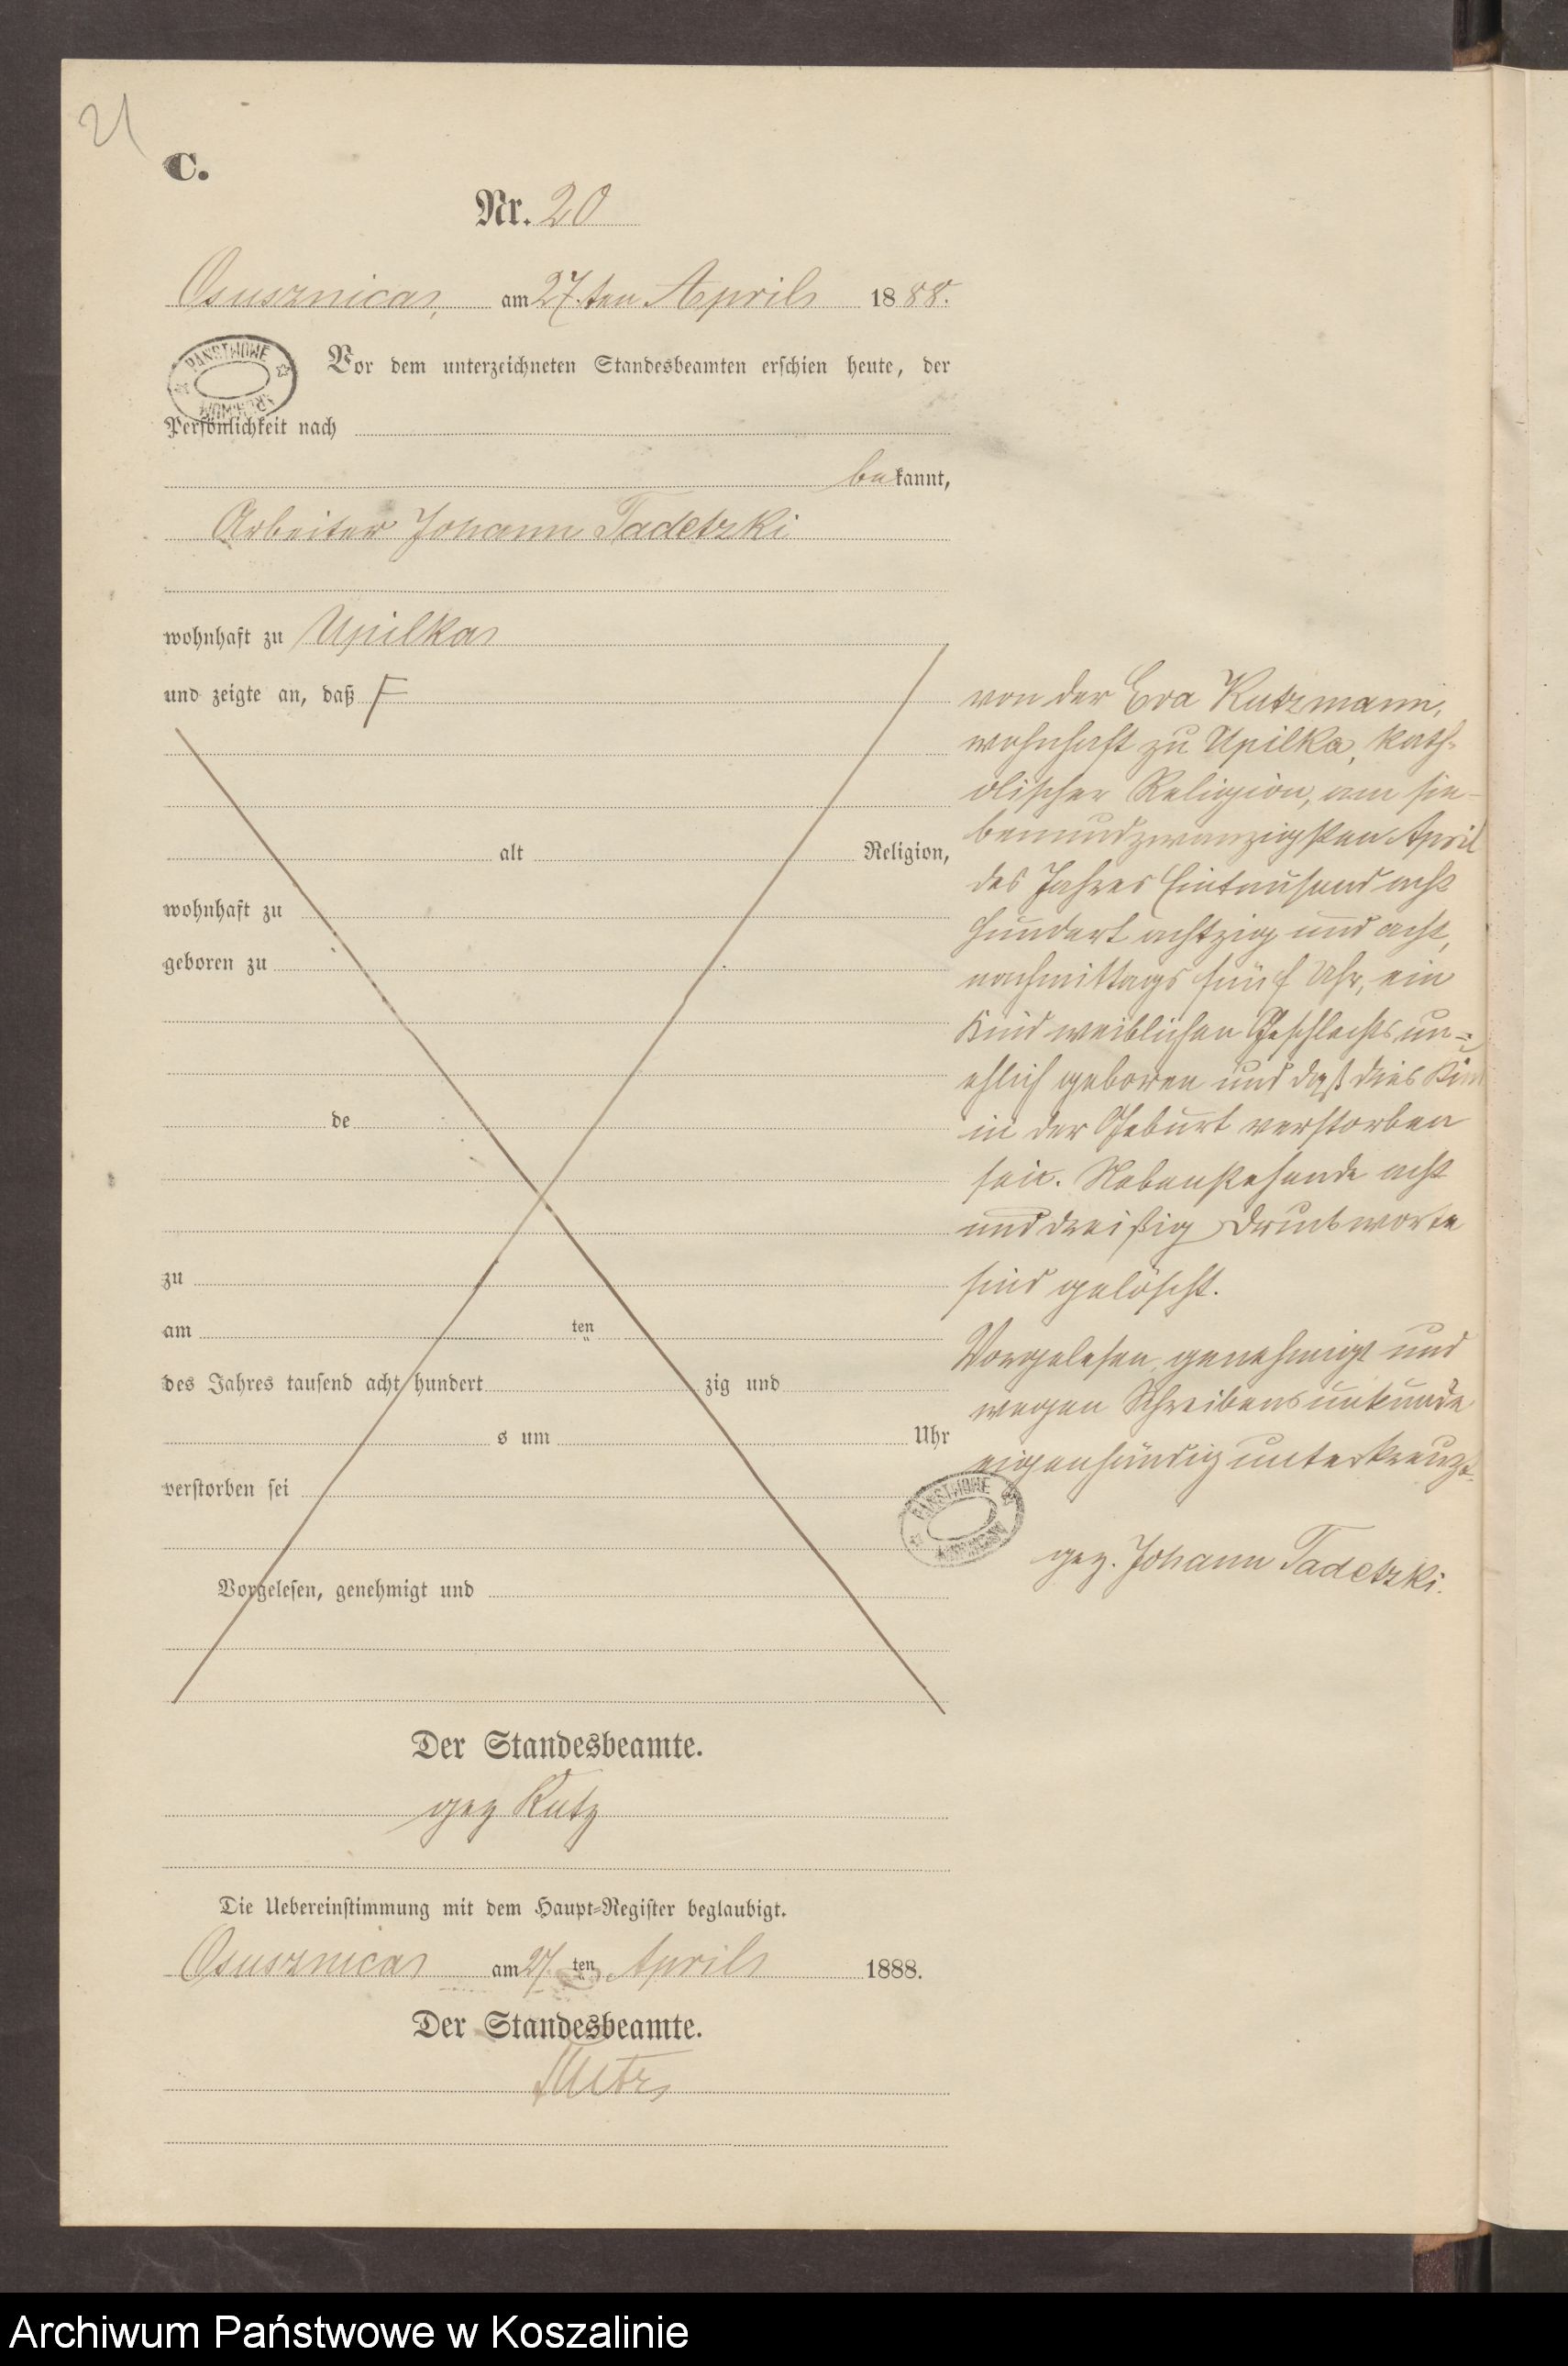 21
C.
Nr. 20
Osusznica, am 27.ten April 1888.
PANSTWOWE ARCHIWUM
Vor dem unterzeichneten Standesbeamten erschien heute, der
Persönlichkeit nach
bekannt,
Arbeiter Johann Tadetzki
wohnhaft zu Upilka
und zeigte an, daß
alt Religion,
wohnhaft zu
geboren zu
de
zu
am ten
des Jahres tausend acht hundert zig und
s um Uhr
verstorben sei
Vorgelesen, genehmigt und
von der Eva Kutzmann,
wohnhaft zu Upilka, kath-
olischer Religion, am sie-
benundzwanzigsten April
des Jahres Eintausend acht
hundert achtzig und acht,
nachmittags fünf Uhr, ein
Kind weiblichen Geschlechts, un-
ehlich geboren und daß dies Kind
in der Geburt verstorben
sei. Nebenstehende acht
und dreißig Druckworte
sind gelöscht.
Vorgelesen, genehmigt und
wegen Schreibensunkunde
eigenhändig unterkreuzt.
PANSTWOWE ARCHIWUM
gez. Johann Tadetzki.
Der Standesbeamte.
gez Kutz
Die Uebereinstimmung mit dem Haupt-Register beglaubigt.
Osusznica am 27 ten April 1888.
Der Standesbeamte.
Archiwum Państwowe w Koszalinie